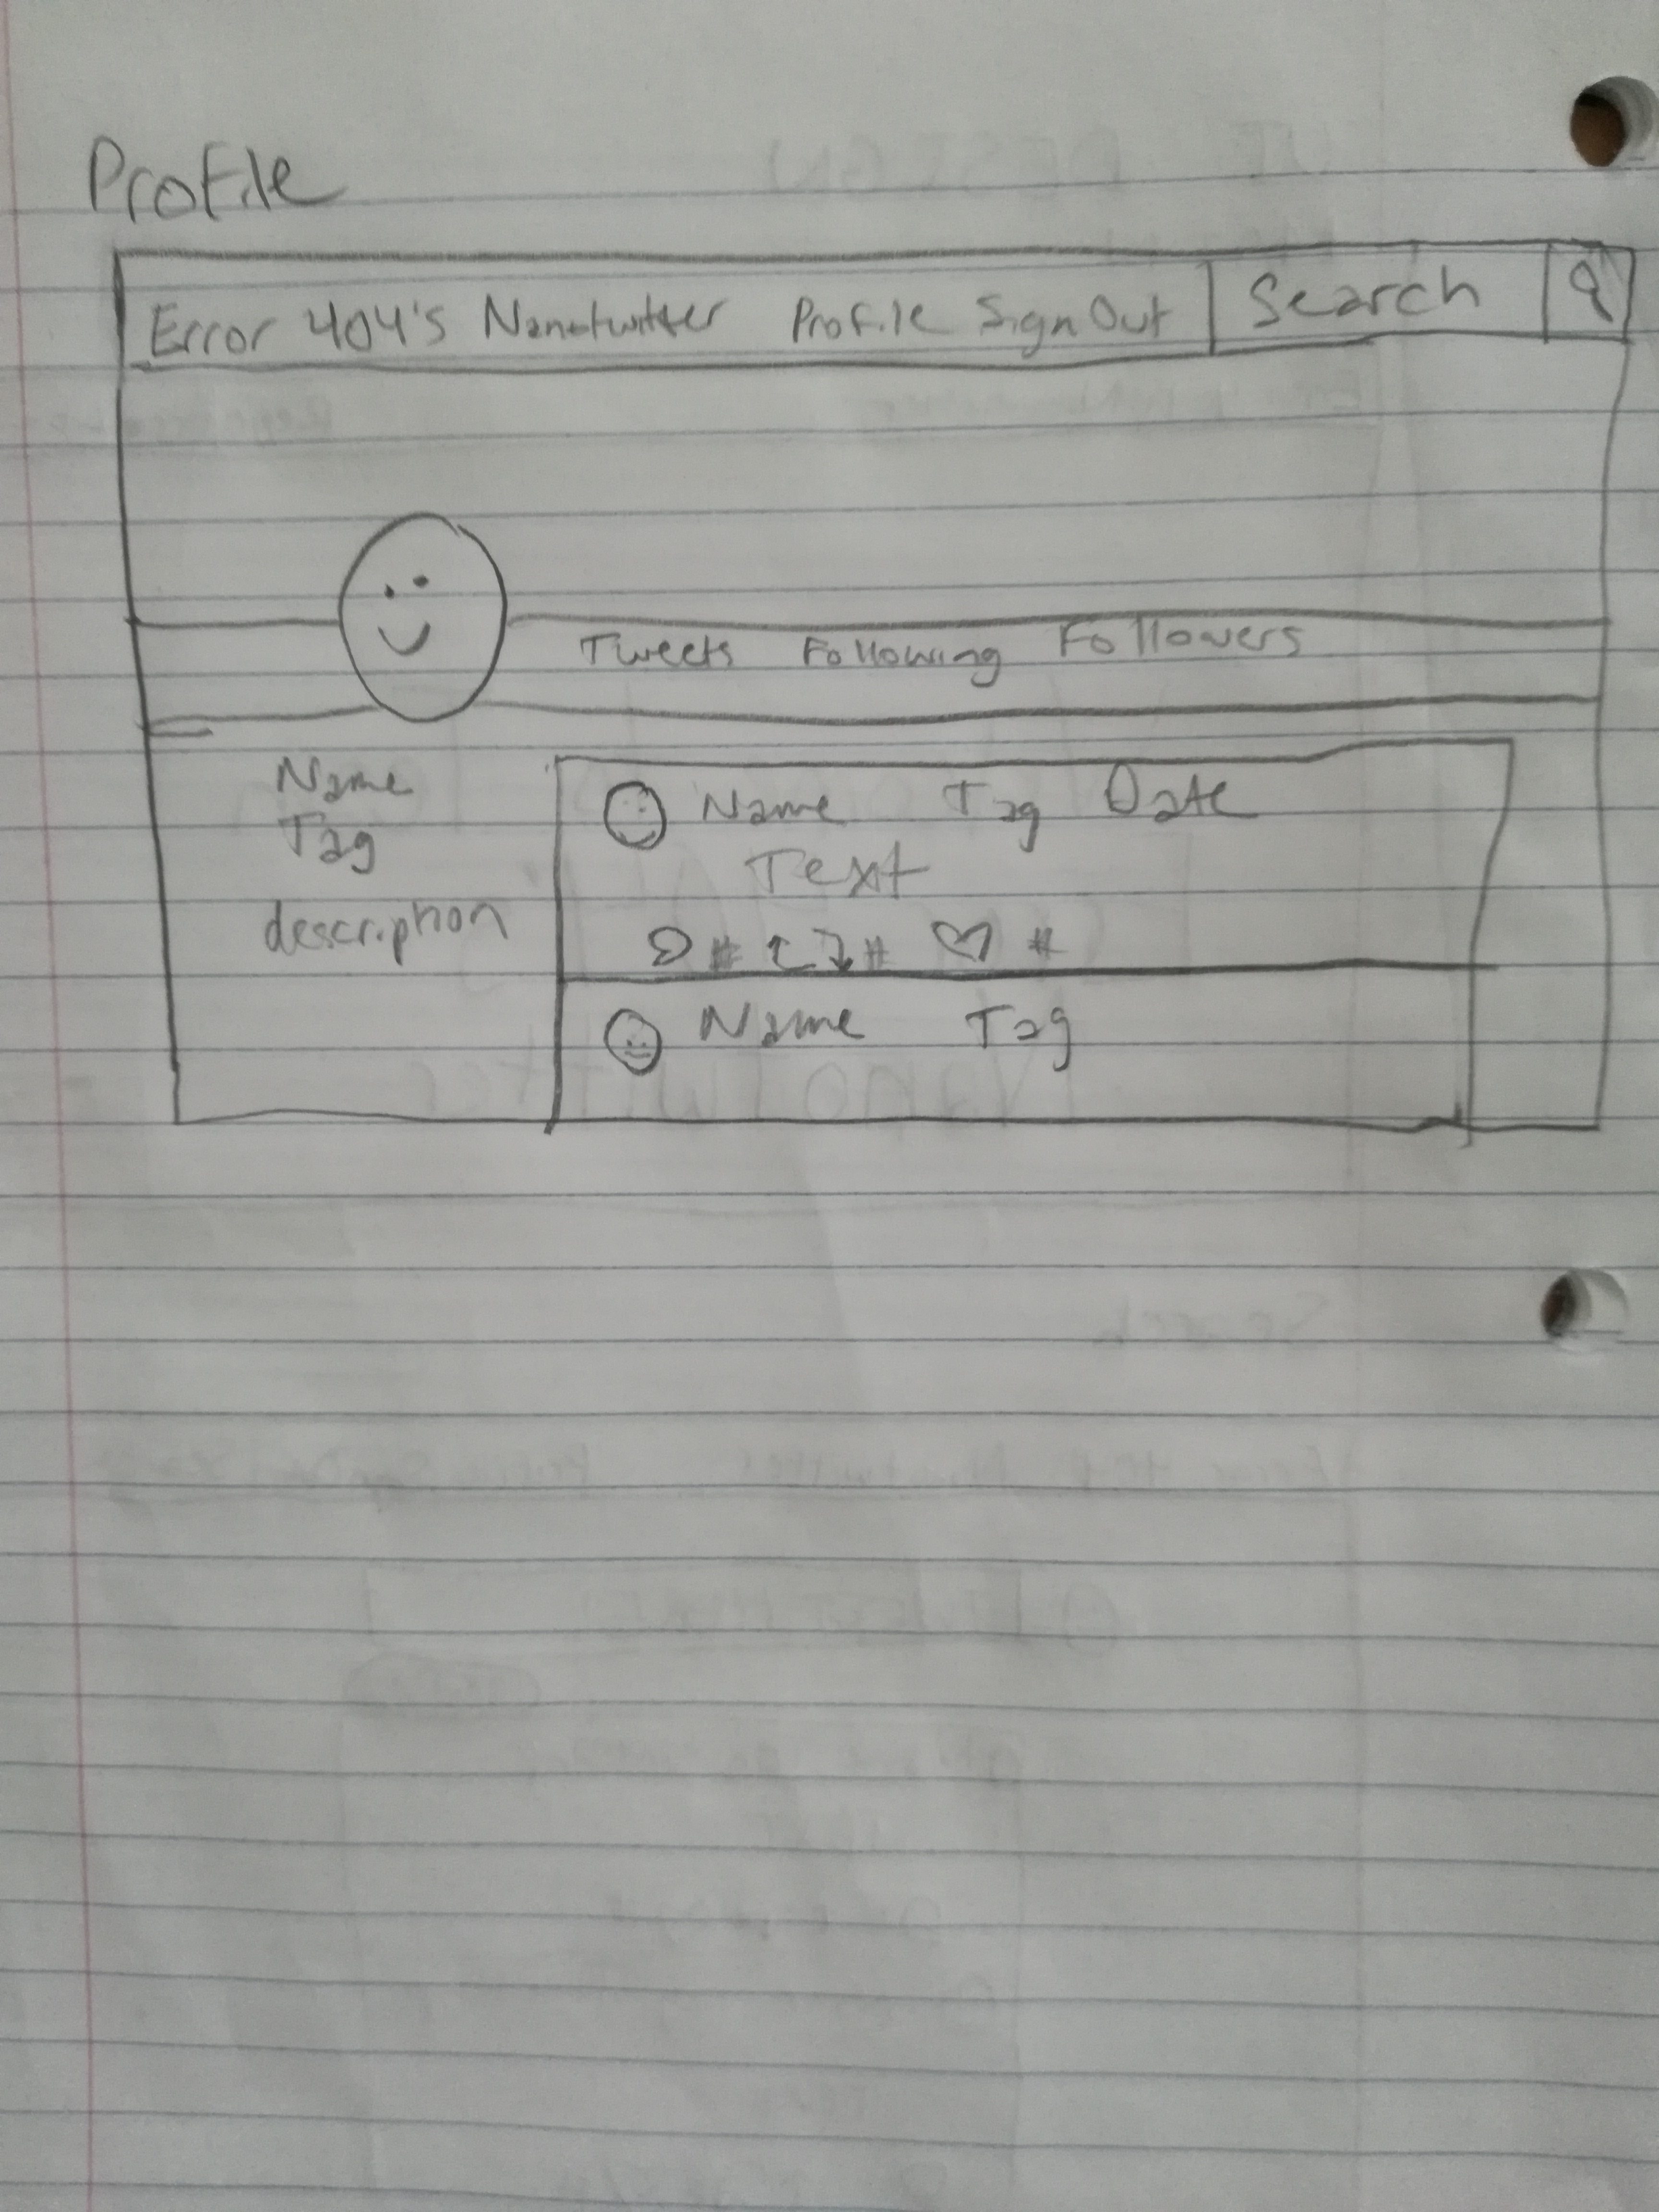 Profile
Error 404's Nanotwitter Profile Sign Out Search
Tweets Following Followers
Name
Tag
description
Name Tag Date
Text
# # #
Name Tag